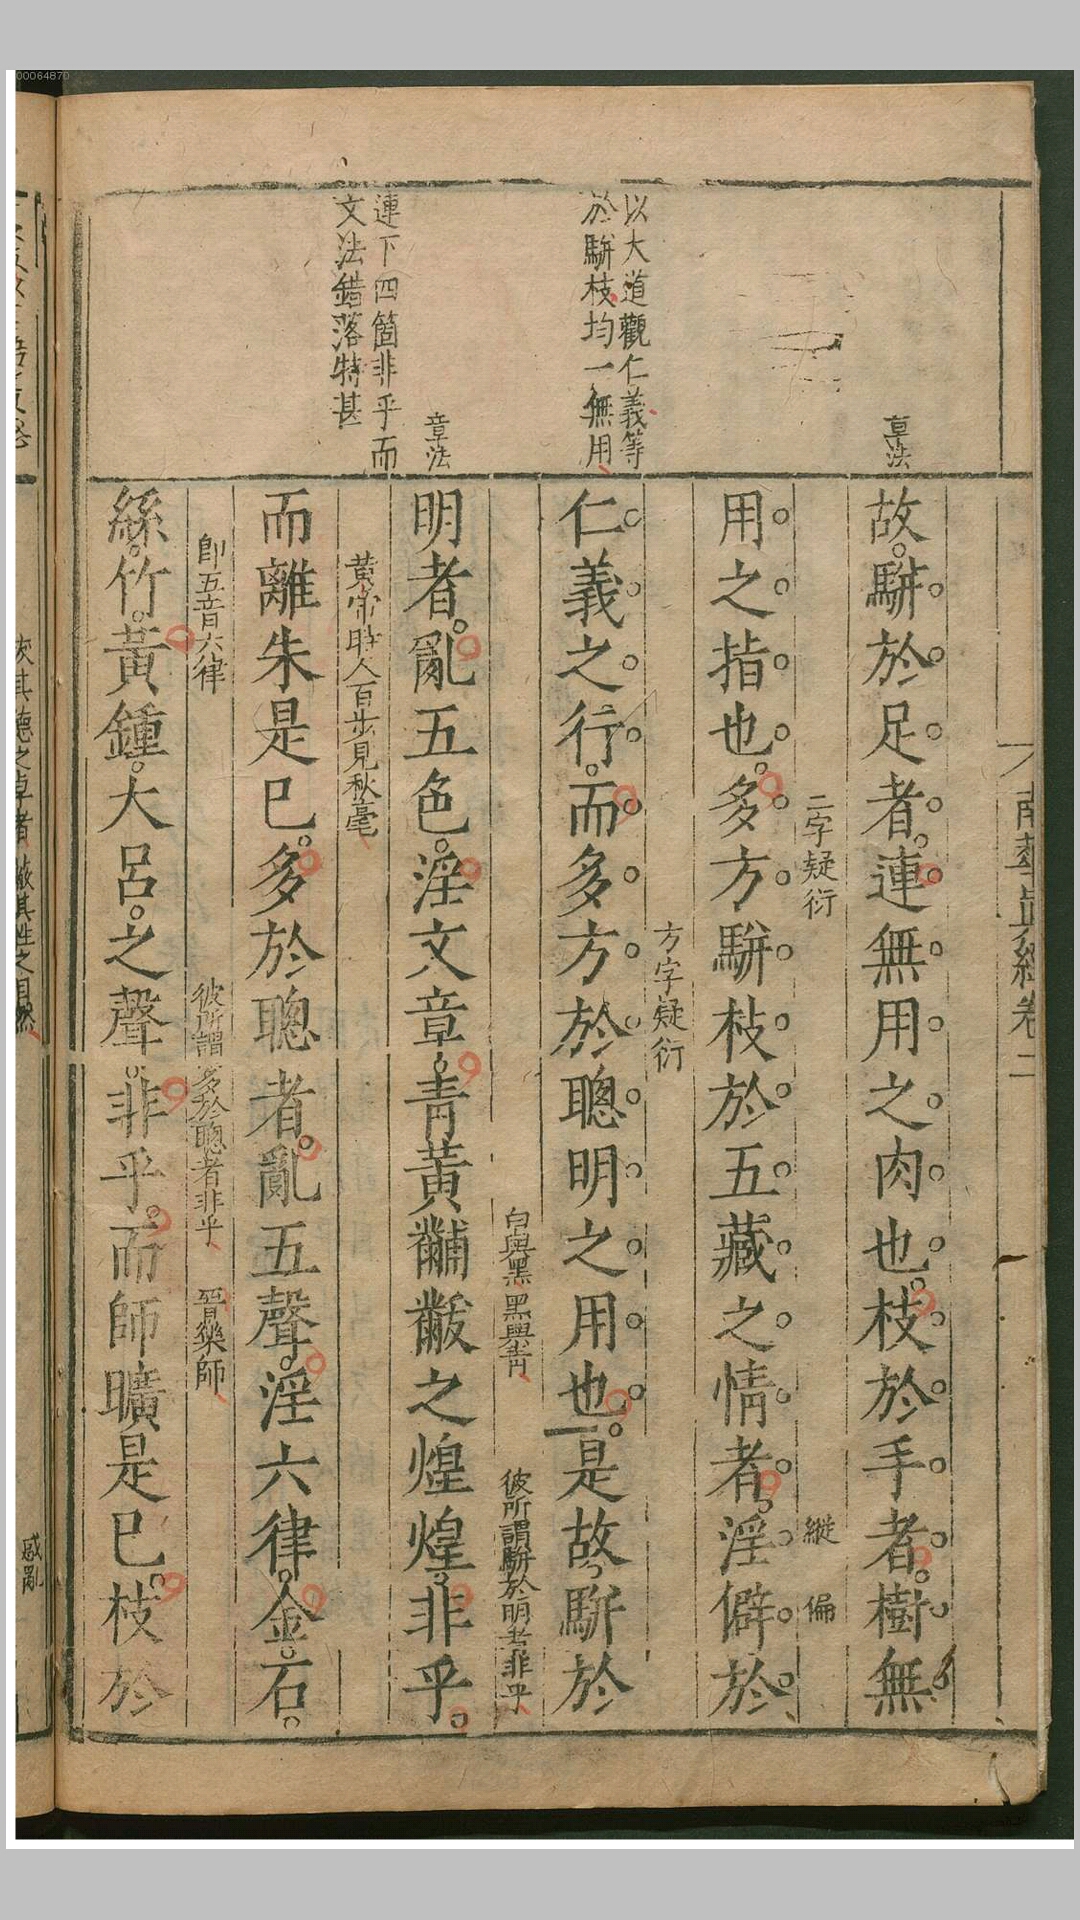 00064870
南華眞經卷二
章法
故駢於足者連無用之肉也枝於手者樹無
二字疑衍
縱 偏
用之指也多方駢枝於五藏之情者淫僻於
以大道觀仁義等
於駢枝均一無用
方字疑衍
仁義之行而多方於聰明之用也是故駢於
白與黑 黑與青
彼所謂駢於明者非乎
章法
明者亂五色淫文章青黃黼黻之煌煌非乎
連下四箇非乎而
文法錯落特甚
黃帝時人百步見秋毫
而離朱是已多於聰者亂五聲淫六律金石
卽五音六律
彼所謂多於聰者非乎
晉樂師
絲竹黃鍾大呂之聲非乎而師曠是已枝於
感亂